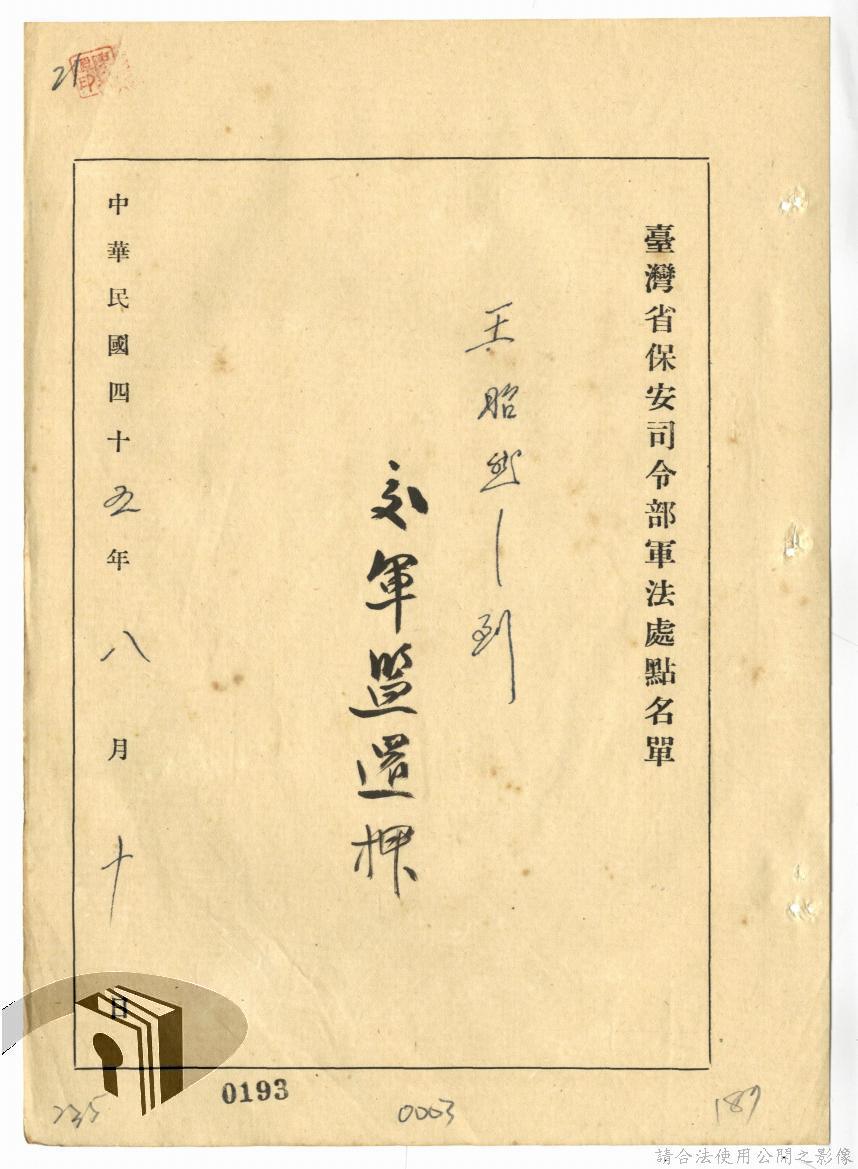 臺灣省保安司令部軍法處點名單
王昭 到
交軍監還押
中華民國四十五年八月十日
21
0193
235
0003
187
請合法使用公開之影像